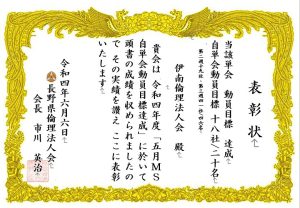 表彰状
当該単会 動員目標 達成
自単会動員目標 十八社/二十名
伊南倫理法人会 殿
貴会は 令和四年度「五月MS
自単会動員目標達成」に於いて
頭書の成績を収められましたの
で その実績を讃え ここに表彰
いたします
令和四年六月六日
長野県倫理法人会
会長 市川 英治